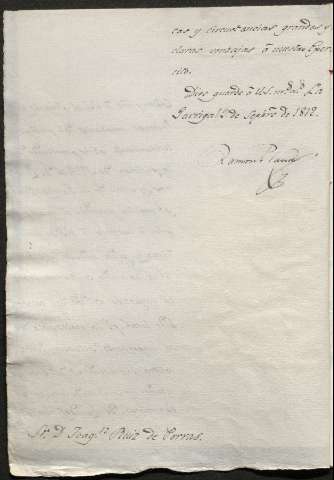 cas y circustancias grandes y
claras ventajas á nuestro Exer-
cito.
Dios guarde á U.S. m.s a.s La
Garriga 2 de Sepbre de 1812.
Ramon
Sr. D. Joaq.n Ruiz de Porras.